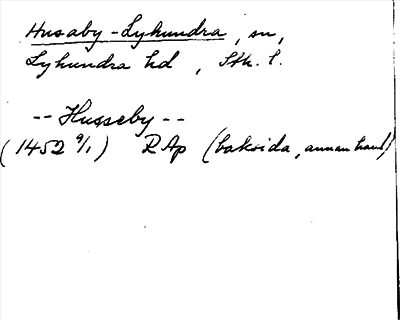 Husaby-Lyhundra, sn,
Lyhundra hd, Sth. l.
-- Husseby --
(1452 9/1) RAp (baksida, annan hand)